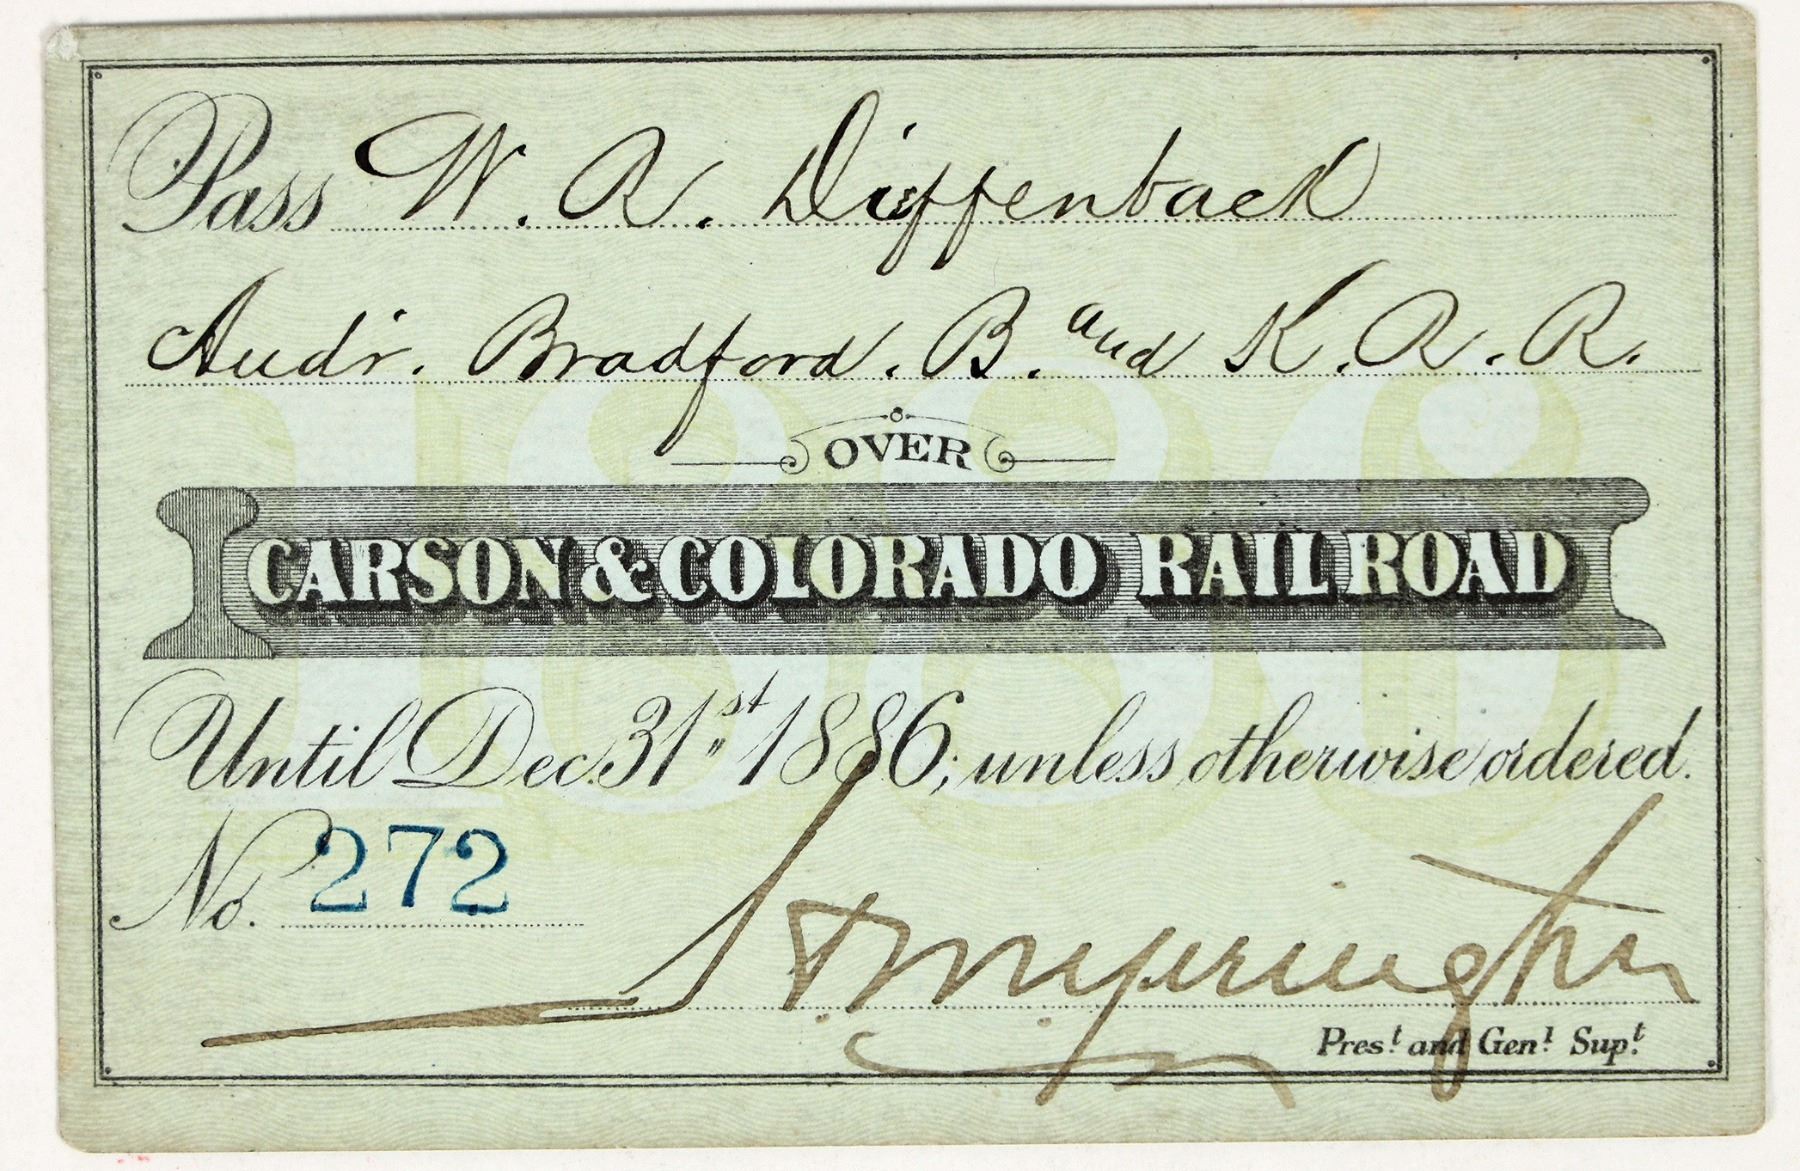 Pass W. R. Dieffenback
Audr. Bradford. B. and K. R. R.
1886
OVER
CARSON & COLORADO RAIL ROAD
Until Dec. 31st 1886, unless otherwise ordered.
No. 272
H M Yerington
Pres.t and Genl. Supt.